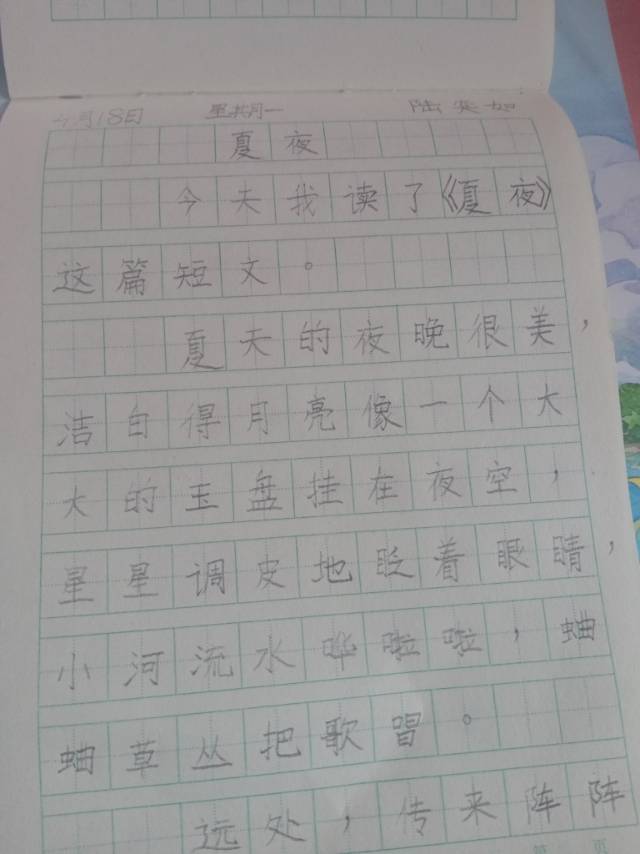 4月18日 星期一 陆奕如
夏夜
今天我读了《夏夜》
这篇短文。
夏天的夜晚很美，
洁白得月亮像一个大
大的玉盘挂在夜空，
星星调皮地眨着眼睛，
小河流水哗啦啦，蛐
蛐草丛把歌唱。
远处，传来阵阵